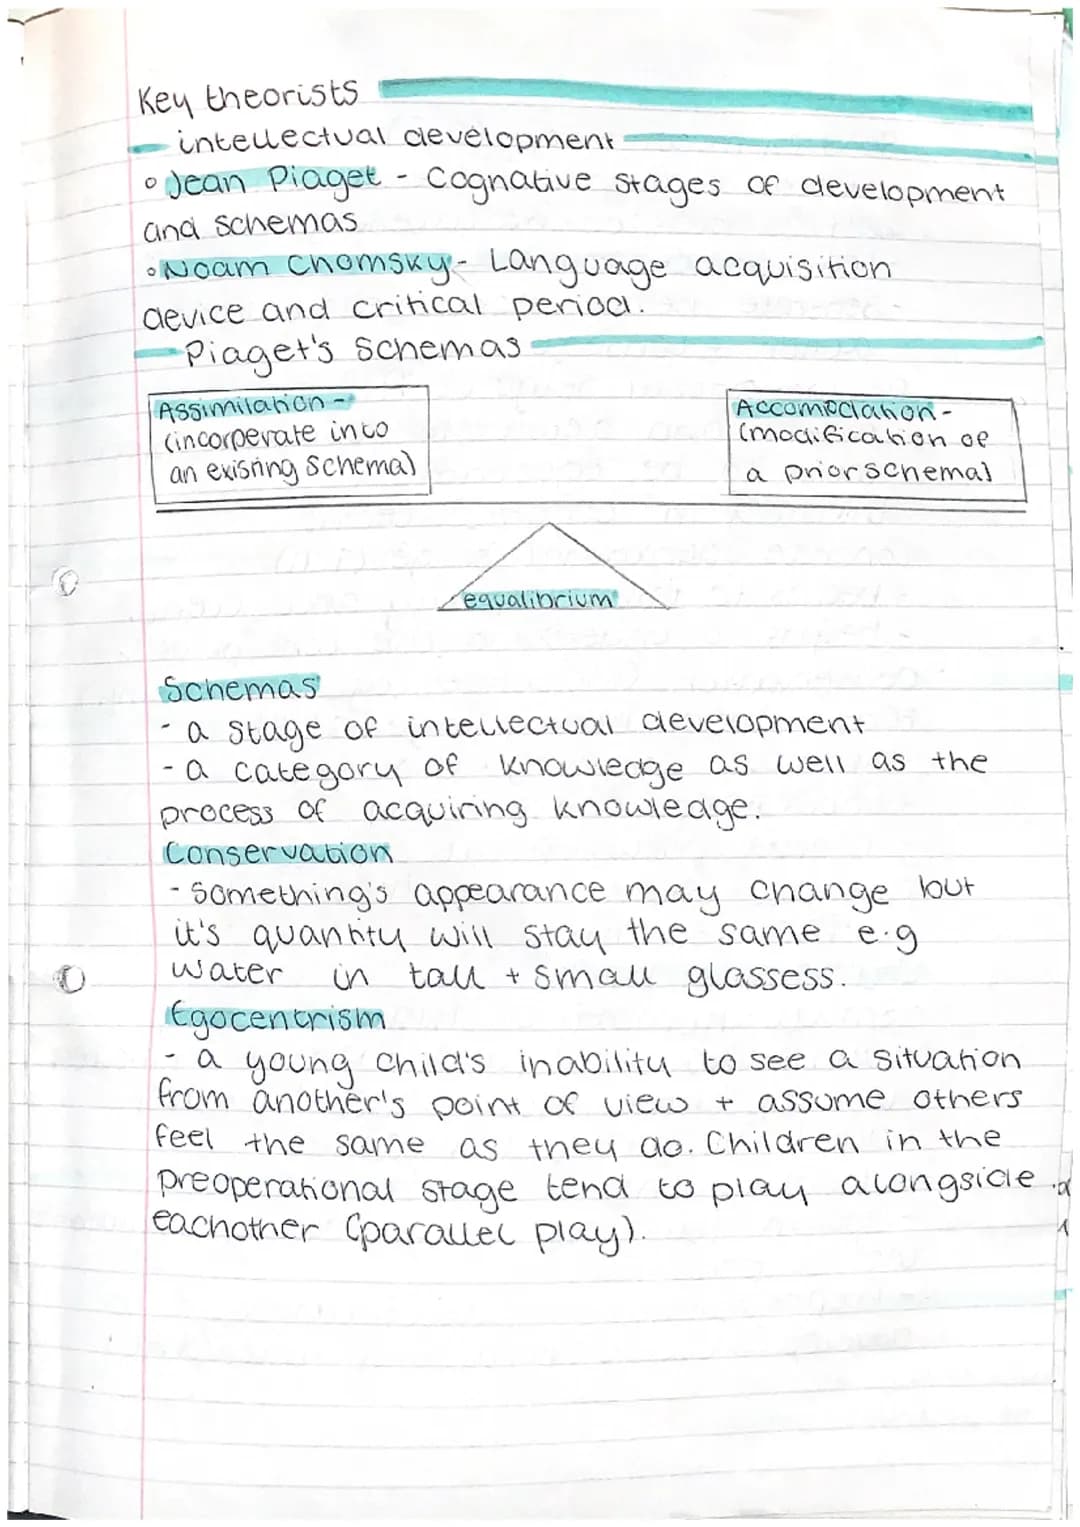 Key theorists
intellectual development
Jean Piaget - Cognative stages of development
and schemas
Noam Chomsky - Language acquisition
device and critical period.
Piaget's schemas
Assimilation -
(incorperate into
an existing schema)
Accomodation -
(modification of
a prior schema)
equalibrium
Schemas
- a stage of intellectual development
- a category of knowledge as well as the
process of acquiring knowledge.
Conservation
- Something's appearance may change but
it's quantity will stay the same e.g
water in tall + small glassess.
Egocentrism
- a young child's inability to see a situation
from another's point of view + assume others
feel the same as they do. Children in the
preoperational stage tend to play alongside
eachother (parallel play).